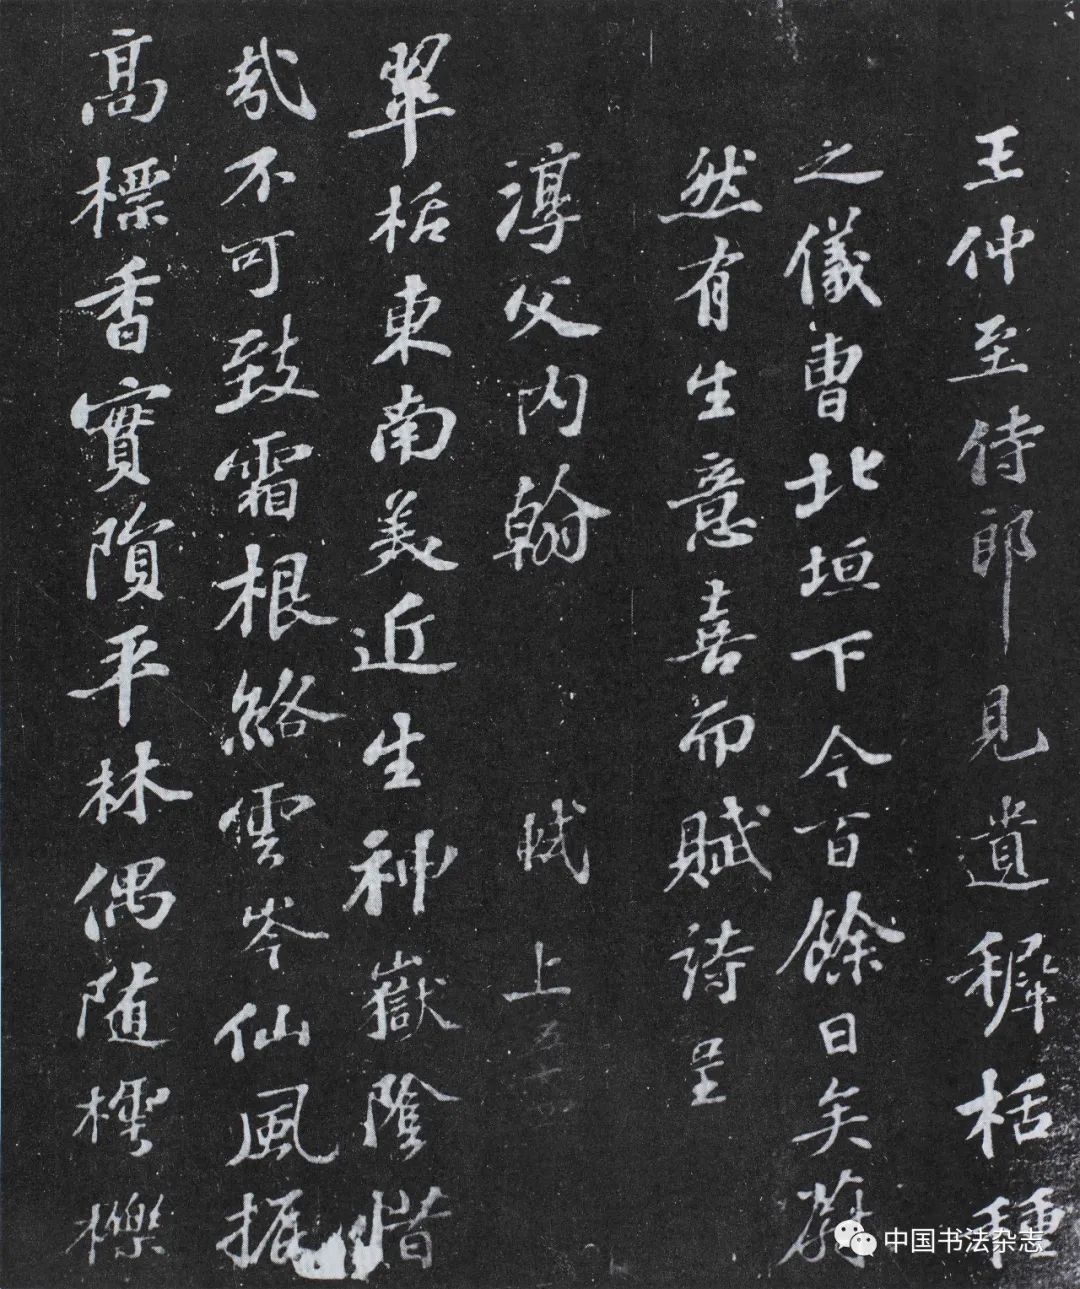 王仲至侍郎見遺穉栝種
之儀曹北垣下今百餘日矣蔚
然有生意喜而賦詩呈
淳父內翰 軾上
翠栝東南美近生神嶽陰惜
哉不可致霜根絡雲岑仙風振
高標香實隕平林偶隨樗櫟
中国书法杂志